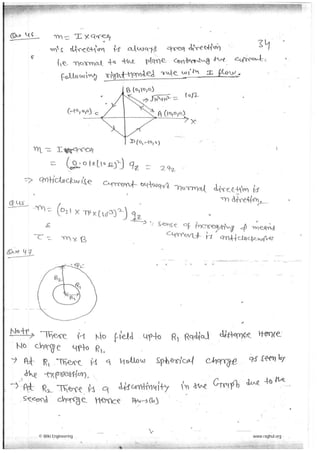 Que 46   m = I × area
34
m's direction is always area direction
i.e. normal to the plane containing the current.
following right handed rule with I flow.
B (0,10,0)
= 10√2
(-10,0,0) C
A (10,0,0)
X
D (0,-10,0)
m = I area
= (0.01×(10√2)²) az = 2az
⇒ anticlockwise current outward normal direction is
m direction.
m = (0.1 × π×(10⁻³)²) az
sense of increasing φ means
current is anticlockwise
τ = m×B
Que 47
R₂
R₁
Note, There is No field upto R₁ Radial distance Hence
No charge upto R₁.
→ At R₁ There is a Hollow Spherical charge as seen by
the expression.
→ At R₂ There is a discontinuity in the Graph due to the
second charge Hence Ans-(b)
© Wiki Engineering
www.raghul.org